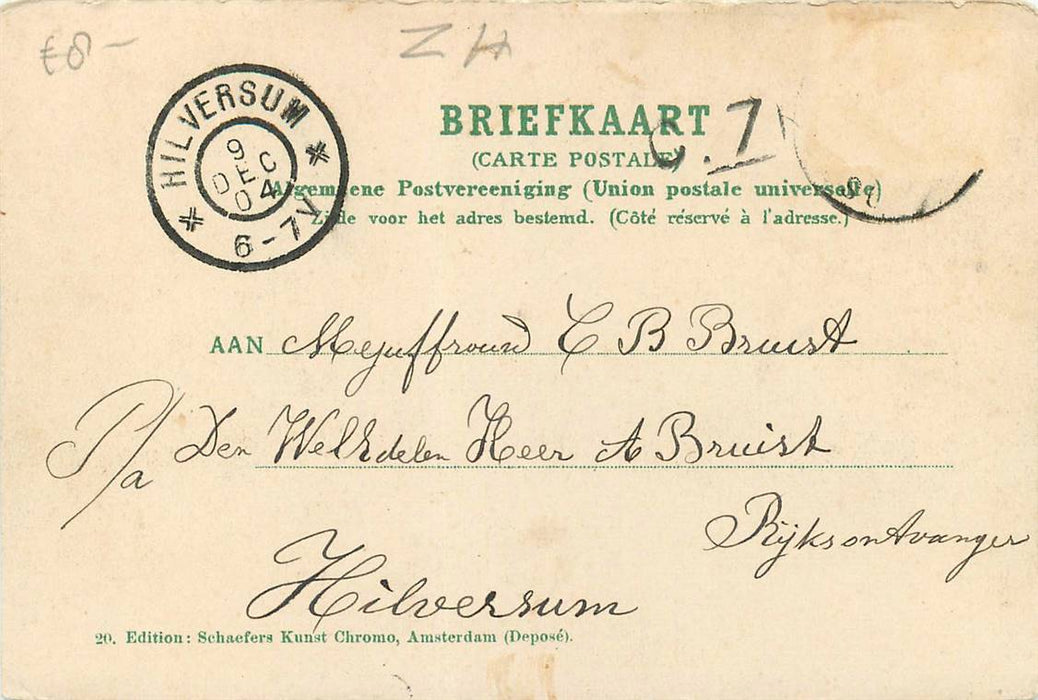 €8-
ZH
HILVERSUM
9
DEC
04
6-7V
BRIEFKAART
(CARTE POSTALE)
Algemeene Postvereeniging (Union postale universelle)
Zijde voor het adres bestemd. (Côté réservé à l'adresse.)
AAN Mejuffrouw C B Bruist
P/a Den WelEdelen Heer A Bruist
Rijksontvanger
Hilversum
20. Edition: Schaefers Kunst Chromo, Amsterdam (Deposé).